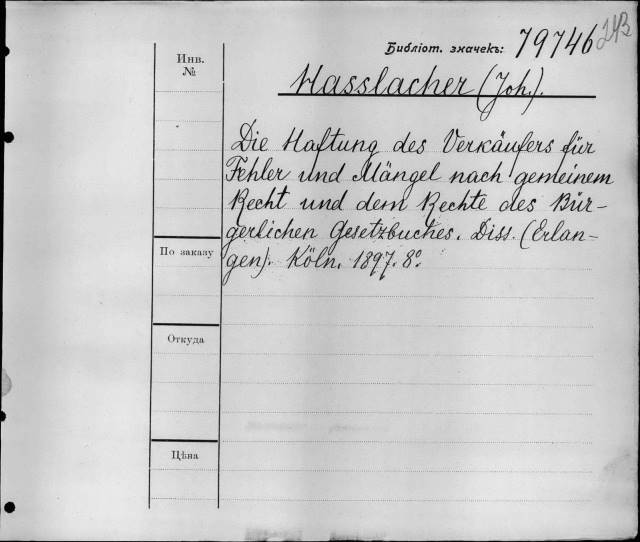 Библіот. значекъ: 79746
243
Инв.
№
Hasslacher (Joh.).
Die Haftung des Verkäufers für
Fehler und Mängel nach gemeinem
Recht und dem Rechte des Bür-
gerlichen Gesetzbuches. Diss. (Erlan-
gen). Köln. 1897. 8º.
По заказу
Откуда
Цѣна